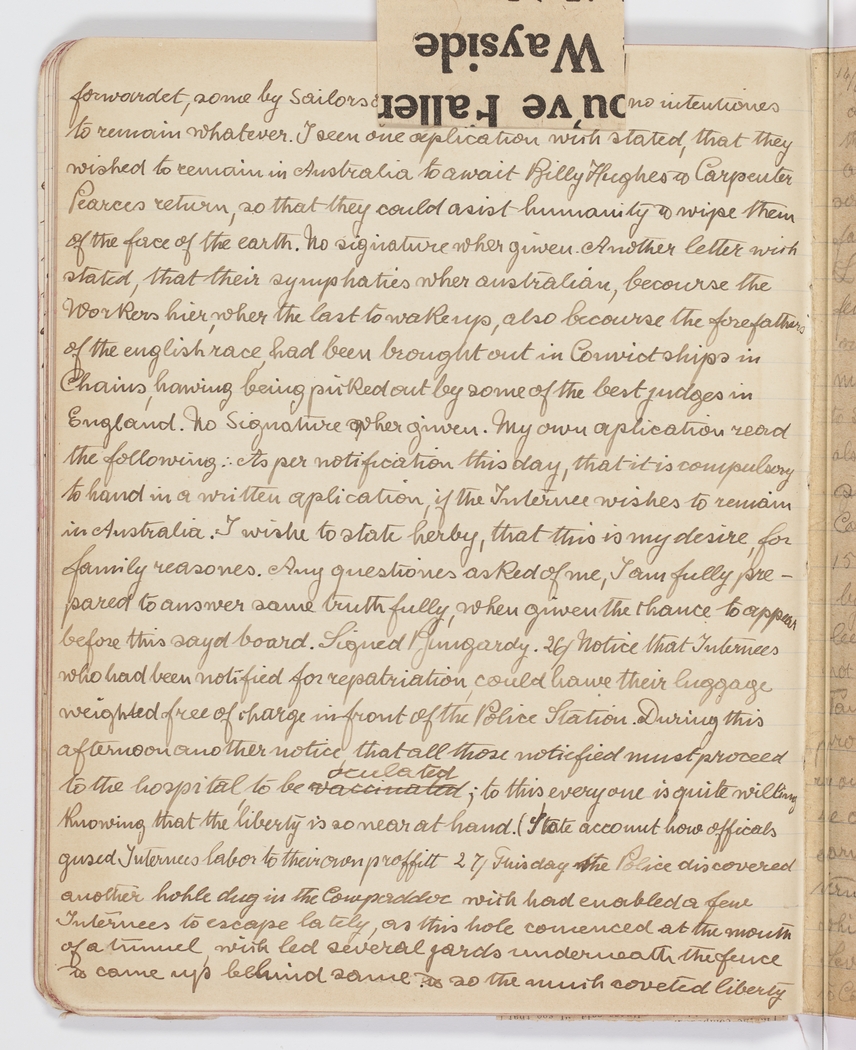 Wayside
ou've Fallen
forwardet, some by Sailors & no intentiones
to remain whatever. I seen one aplication wish stated, that they
wished to remain in Australia to await Billy Hughes & Carpenter
Pearces return, so that they could asist humanity to wipe them
of the face of the earth. No signature wher given. Another letter wish
stated, that their symphaties wher australian, becourse the
Workers hier, wher the last to wake up, also becourse the forefathers
of the english race, had been brought out in Convict ships in
Chains, hawing being picked out by some of the best judges in
England. No Signature wher given. My own aplication read
the following:. As per notification this day, that it is compulsory
to hand in a written aplication, if the Internee wishes to remain
in Australia. I wishe to state herby, that this is my desire, for
family reasones. Any questiones asked of me, I am fully pre-
pared to answer same truthfully, when given the chance to appear
before this sayd board. Signed Jungardy. 26/ Notice that Internees
who had been notified for repatriation, could hawe their luggage
weighted free of charge in front of the Police Station. During this
afternoon another notice, that all those noticfied must proceed
to the hospital, to be vaccinated oculated; to this every one is quite willing
Knowing that the liberty is so near at hand. (State account how officals
gused Internees labor to their own proffitt 27/ Tuisday the Police discovered
another hohle dug in the Compaddoc wish had enabled a few
Internees to escape lately, as this hole comenced at the mouth
of a tunnel, wish led several yards underneath the fence
to came up behind same so the much coveted liberty